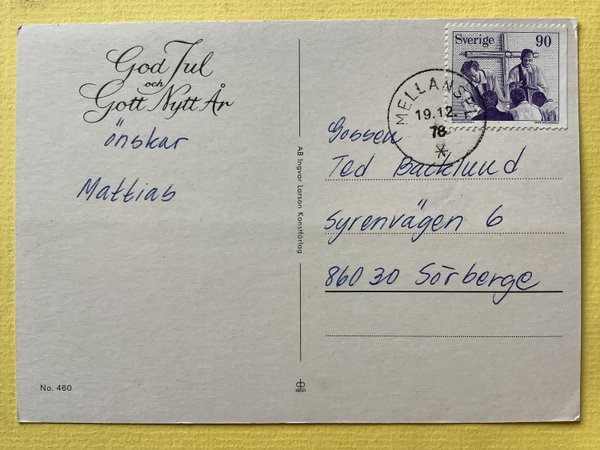 God Jul
och
Gott Nytt År
önskar
Mattias
No. 460
AB Ingvar Larson Konstförlag
Sverige 90
MELLANSEL
19.12.
78
Gossen
Ted Backlund
Syrenvägen 6
860 30 Sörberge